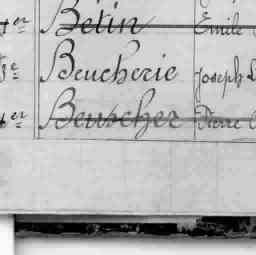 1er Bétin Emile
Beucherie Joseph
1er Beuscher Pierre